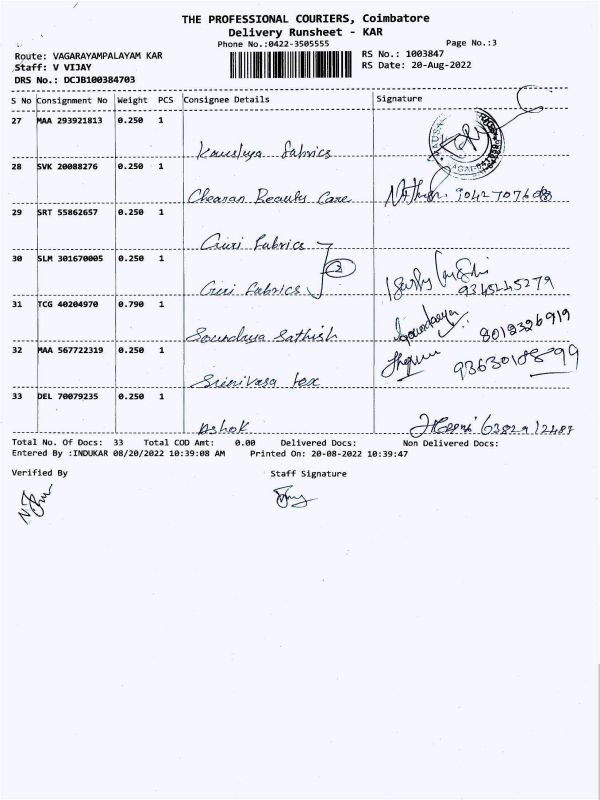 THE PROFESSIONAL COURIERS, Coimbatore
Delivery Runsheet - KAR
Phone No.:0422-3505555
Page No.:3
Route: VAGARAYAMPALAYAM KAR
RS No.: 1003847
Staff: V VIJAY
RS Date: 20-Aug-2022
DRS No.: DCJB100384703
S No Consignment No Weight PCS Consignee Details Signature
27 MAA 293921813 0.250 1
Kausalya Fabrics
28 SVK 20088276 0.250 1
Chearan Beauty Care
29 SRT 55862657 0.250 1
Giri Fabrics
30 SLM 301670005 0.250 1
2
Giri Fabrics
31 TCG 40204970 0.790 1
Soundarya Sathish 8019326919
32 MAA 567722319 0.250 1
Srinivasa tex
33 DEL 70079235 0.250 1
Ashok
Total No. Of Docs: 33 Total COD Amt: 0.00 Delivered Docs: Non Delivered Docs:
Entered By :INDUKAR 08/20/2022 10:39:08 AM Printed On: 20-08-2022 10:39:47
Verified By Staff Signature